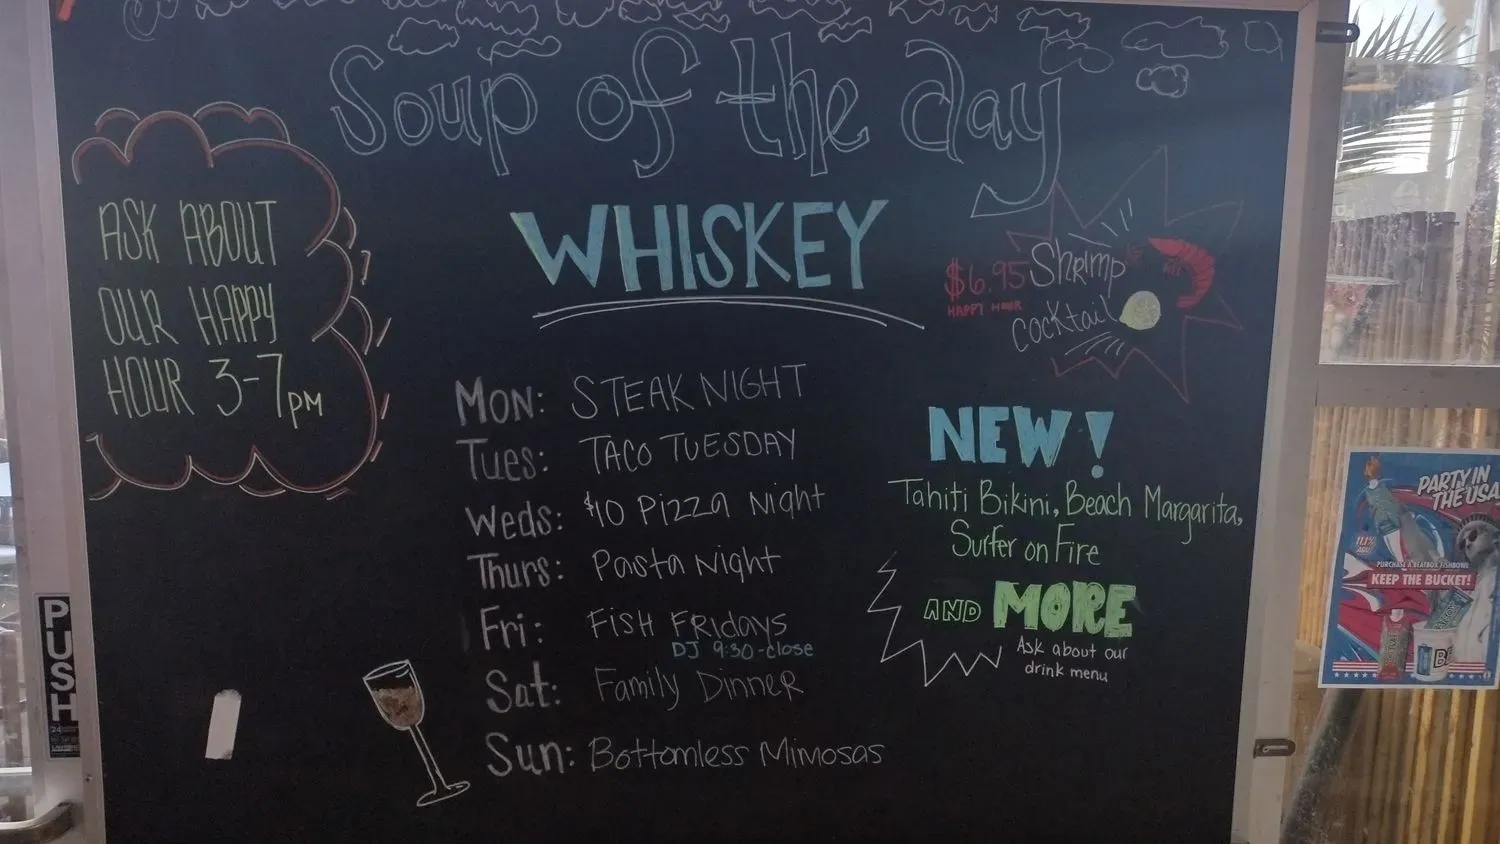 Soup of the day
WHISKEY
ASK ABOUT
OUR HAPPY
HOUR 3-7pm
$6.95 Shrimp
HAPPY HOUR
cocktail
Mon: STEAK NIGHT
Tues: TACO TUESDAY
Weds: $10 Pizza Night
Thurs: Pasta Night
Fri: FISH FRIDAYS
DJ 9:30-close
Sat: Family Dinner
Sun: Bottomless Mimosas
NEW!
Tahiti Bikini, Beach Margarita,
Surfer on Fire
AND MORE
Ask about our
drink menu
PUSH
PARTY IN
THE USA
11.1%
PURCHASE A BEATBOX FISHBOWL
KEEP THE BUCKET!